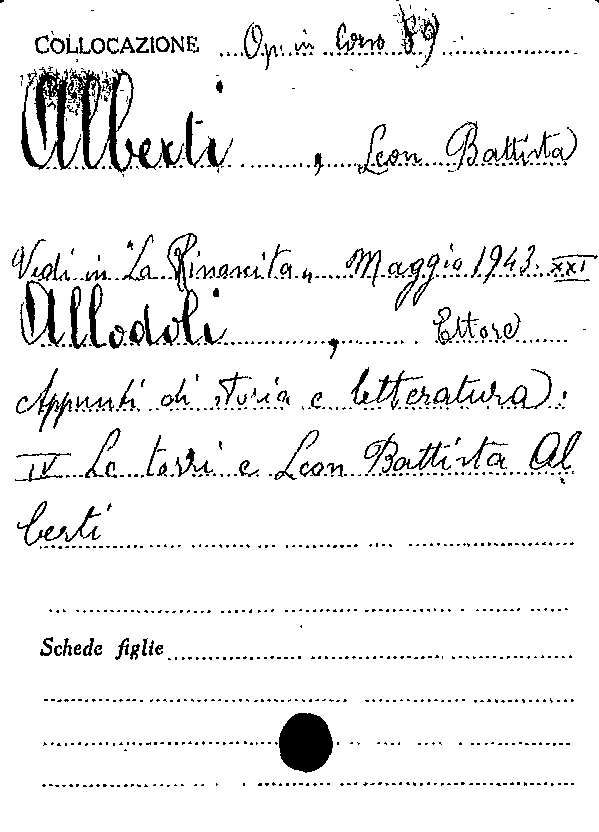 COLLOCAZIONE Op. in Corso 89
Alberti , Leon Battista
Vedi in "La Rinascita" Maggio 1943. XXI
Allodoli , Ettore
Appunti di storia e letteratura:
IV Le torri e Leon Battista Al
berti
Schede figlie